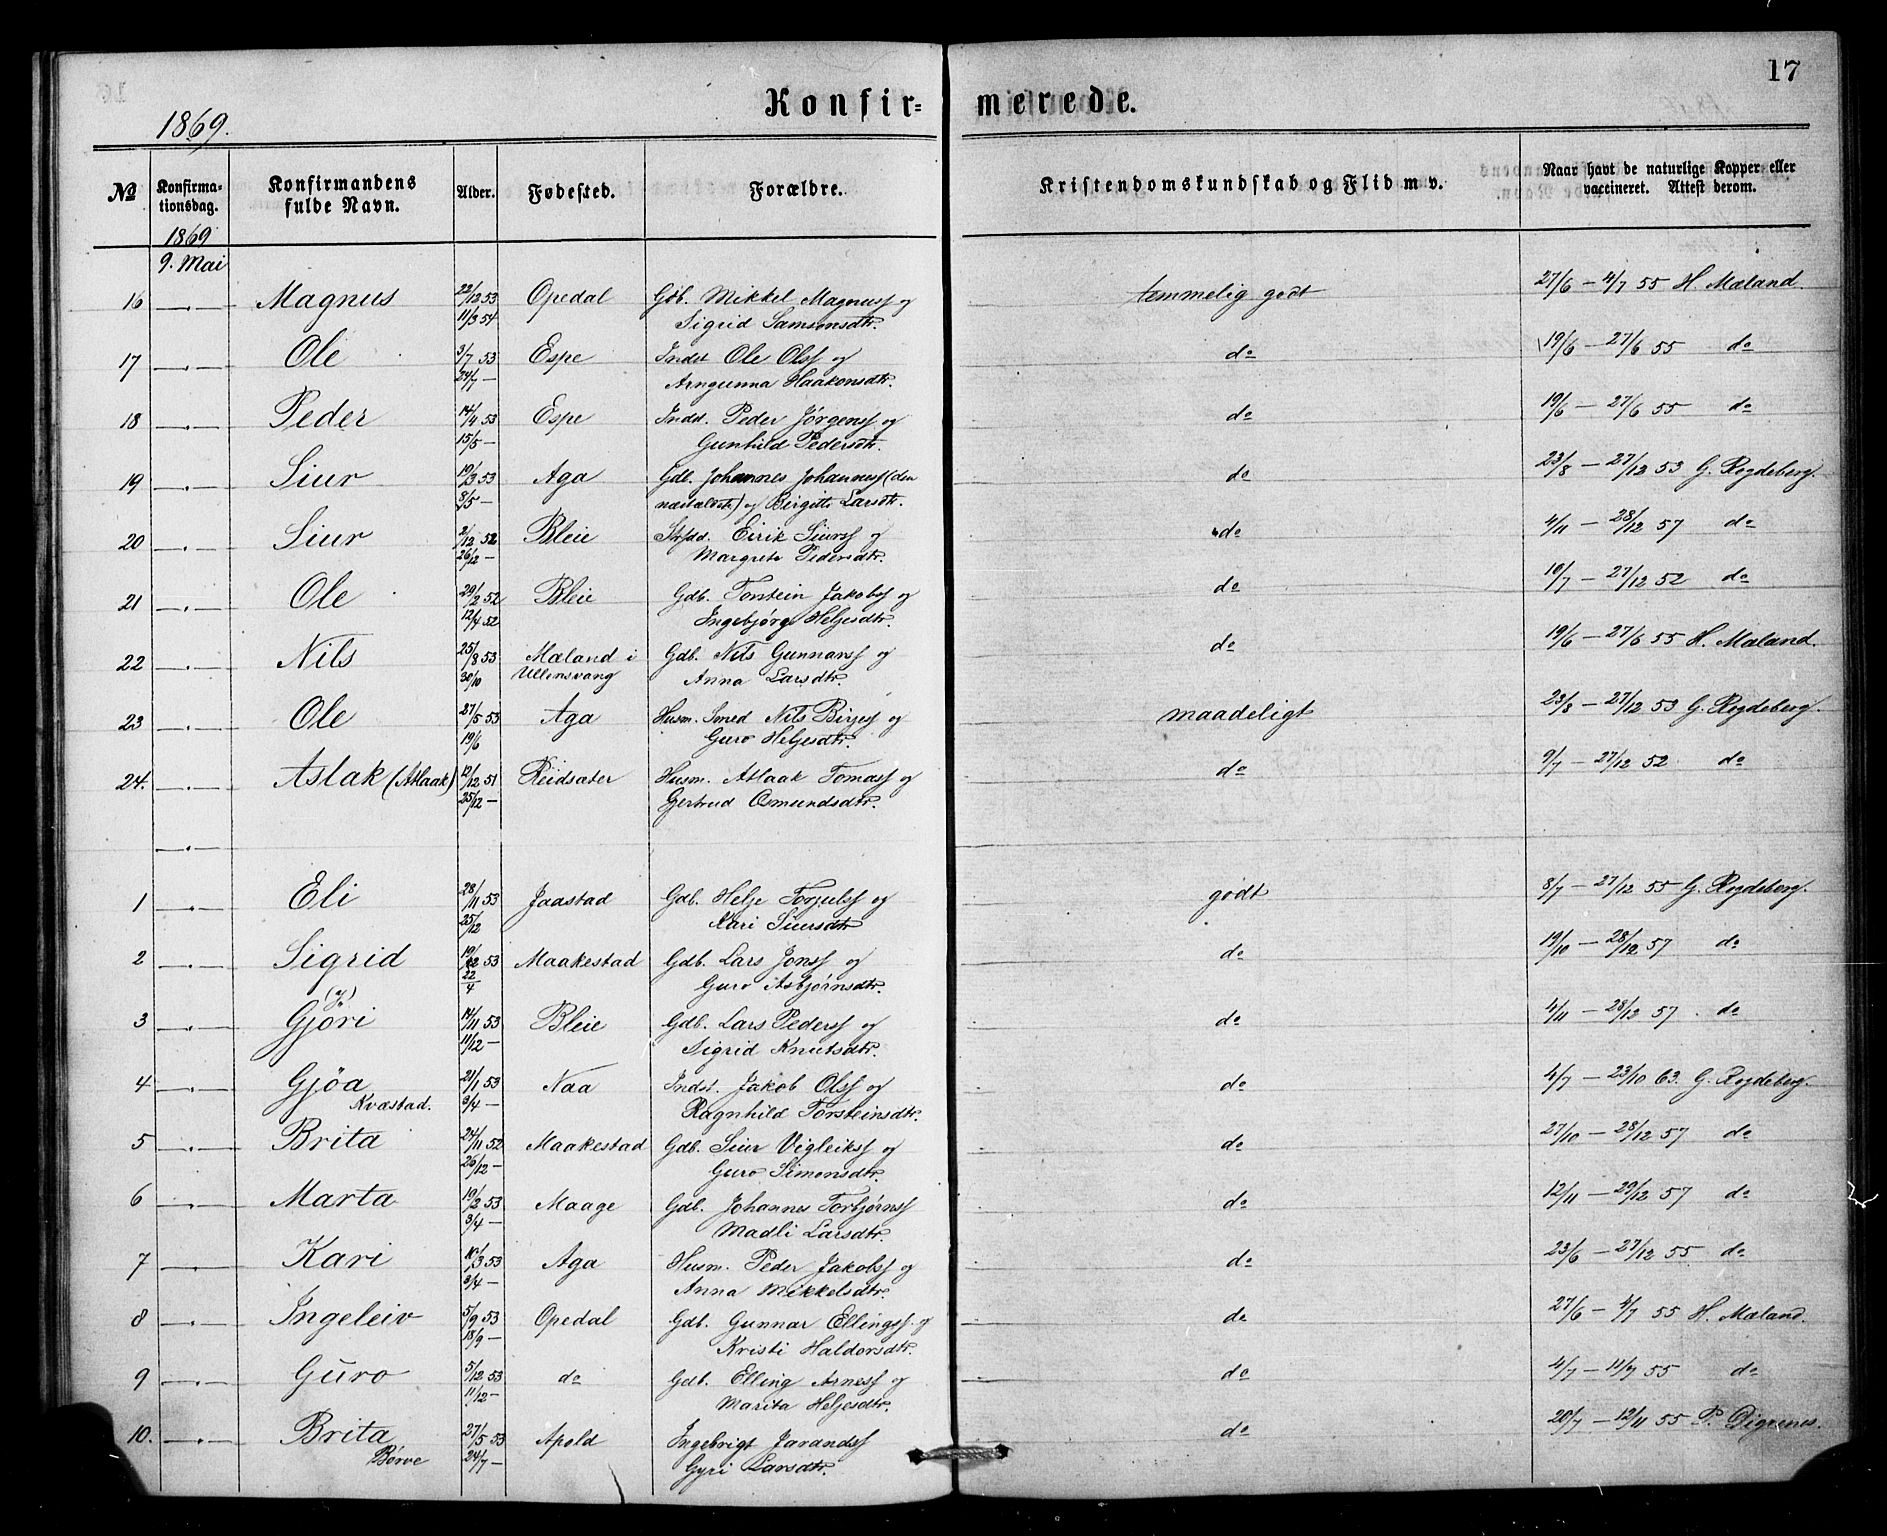 17
1869.
Konfir= merede.
No Konfirma-tionsdag. Konfirmandens fulde Navn. Alder. Fødested. Forældre. Kristendomskundskab og Flid m v. Naar havt de naturlige Kopper eller vaccineret. Attest derom.
1869
9. Mai
16 —„— Magnus 22/12 53 Opedal Gdb. Mikkel Magnuss og temmelig godt 27/6 — 4/7 55 H. Mæland.
11/3 54 Sigrid Samsonsdtr.
17 —„— Ole 3/7 53 Espe Indst Ole Olss og do 19/6 — 27/6 55 do
24/7 — Arngunna Haakonsdtr.
18 —„— Peder 14/4 53 Espe Indst. Peder Jørgenss og do 19/6 — 27/6 55 do
15/5 — Gunhild Pedersdtr.
19 —„— Siur 19/3 53 Aga Gdb. Johannes Johanness (den do 23/8 — 27/12 53 G. Rogdeberg.
8/5 — næstældste) og Birgitte Larsdtr.
20 —„— Siur 2/12 52 Bleie Eirik Siurss og do 4/11 — 28/12 57 do
26/12 — Margrete Pedersdtr.
21 —„— Ole 29/2 52 Bleie Gdb. Torstein Jakobss og do 10/7 — 27/12 52 do
12/4 52 Ingebjørg Heljesdtr.
22 —„— Nils 25/8 53 Mæland i Gdb. Nils Gunnarss og do 19/6 — 27/6 55 H. Mæland.
30/10 Ullensvang Anna Larsdtr.
23 —„— Ole 27/5 53 Aga Husm. Smed Nils Birjess og maadeligt 23/8 — 27/12 53 G. Rogdeberg.
19/6 Guro Heljesdtr.
24. —„— Aslak (Atlaak) 12/12 51 Reidsæter Husm. Atlaak Tomass og do 9/7 — 27/12 52 do
25/12 — Gertrud Osmundsdtr.
—„—
1 —„— Eli 28/11 53 Jaastad Gdb. Helje Torjulss og godt 8/7 — 27/12 55 G. Rogdeberg.
25/12 Kari Siursdtr
2 —„— Sigrid 53 Maakestad Gdb. Lars Jonss og do 19/10 — 28/12 57 do
22/4 Guro Asbjørnsdtr.
(y)
3 —„— Gjøri 14/11 53 Bleie Gdb. Lars Pederss og do 4/11 — 28/12 57 do
11/12 — Sigrid Knutsdtr.
4 —„— Gjøa 21/1 53 Naa Indst. Jakob Olss og do 4/7 — 23/10 63. G. Rogdeberg.
Kvæstad. 3/4 — Ragnhild Torsteinsdtr.
5 —„— Brita 24/11 52 Maakestad Gdb. Siur Vigleikss og do 27/10 — 28/12 57 do
26/12 — Guro Simonsdtr.
6 —„— Marta 19/2 53 Maage Gdb. Johannes Torbjørnss do 12/11 — 29/12 57 do
3/4 — Madli Larsdtr.
7 —„— Kari 10/3 53 Aga Husm. Peder Jakobss og do 23/6 — 27/12 55 do
3/4 — Anna Mikkelsdtr.
8 —„— Ingeleiv 5/9 53 Opedal Gdb. Gunnar Ellingss. og do 27/6 — 4/7 55 H. Mæland.
18/9 — Kristi Haldorsdtr.
9 —„— Guro 5/12 53 do Gdb. Elling Arness og do 4/7 — 11/7 55 do
11/12 — Marita Heljesdtr.
10. —„— Brita 27/5 53 Apold Ingebrigt Jarandss do 20/7 — 12/11 55 P. Digrenes.
Børve 24/7 — Gyri Larsdtr.